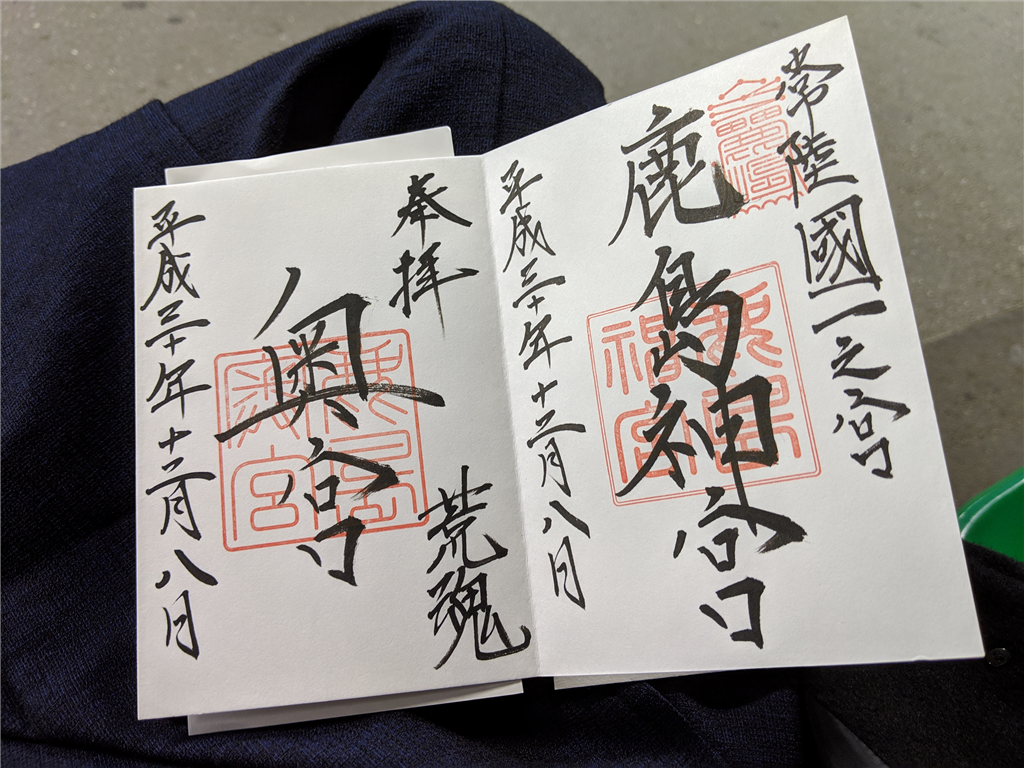 常陸國一之宮
鹿島神宮
平成三十年十二月八日
奉拝
荒魂
奥宮
平成三十年十二月八日